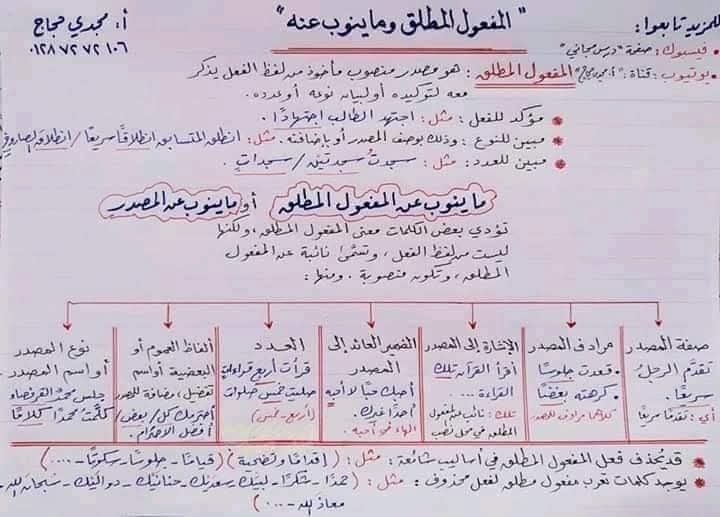 للمزيد تابعوا:
"المفعول المطلق وما ينوب عنه"
أ: مجدي حجاج
٠١٢٨٧٢٧٢١٠٦
* فيسبوك: صفحة "درس مجاني"
* يوتيوب: قناة: "أ. مجدي حجاج"
المفعول المطلق: هو مصدر منصوب مأخوذ من لفظ الفعل يذكر
معه لتوكيده أو لبيان نوعه أو عدده.
* مؤكد للفعل: مثل: اجتهد الطالب اجتهادًا.
* مبين للنوع: وذلك بوصف المصدر أو بإضافته. مثل: انطلق المتسابق انطلاقًا سريعًا / انطلاق الصاروخ
* مبين للعدد: مثل: سجدتُ سجدتين / سجداتٍ.
ما ينوب عن المفعول المطلق أو ما ينوب عن المصدر
تؤدي بعض الكلمات معنى المفعول المطلق، ولكنها
ليست من لفظ الفعل، وتسمى نائبة عن المفعول
المطلق، وتكون منصوبة. ومنها:
صفة المصدر
تقدَّم الرجلُ
سريعًا.
أي: تقدمًا سريعًا
مرادف المصدر
* قعدت جلوسًا
* كرهته بغضًا
كلاهما مرادف للمصدر
الإشارة إلى المصدر
أقرأ القرآن تلك
القراءة....
تلك: نائب عن المفعول
المطلق في محل نصب
الضمير العائد إلى
المصدر
أحبك حبًا لا أحبه
أحدًا غيرك.
الهاء في أحبه
العدد
قرأت أربع قراءات
صليت خمس صلوات
(أربع - خمس)
ألفاظ العموم أو
البعضية أو اسم
تفضيل، مضافة للمصدر
أحترمك كل / بعض /
أفضل الاحترام.
نوع المصدر
أو اسم المصدر
جلس محمدٌ القرفصاء
كلَّمتُ محمدًا كلامًا
* قد يُحذف فعل المفعول المطلق في أساليب شائعة: مثل: (إقدامًا وتضحية) (قيامًا - جلوسًا - سكوتًا - ....)
* يوجد كلمات تعرب مفعول مطلق لفعل محذوف: مثل: (حمدًا - شكرًا - لبيك وسعديك - حنانيك - دواليك - سبحان الله -
معاذ الله - ...)